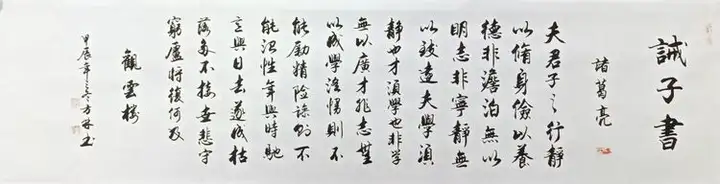 誡子書
諸葛亮
夫君子之行靜
以脩身儉以養
德非澹泊無以
明志非寧靜無
以致遠夫學須
靜也才須學也非學
無以廣才非志無
以成學淫慢則不
能勵精險躁則不
能冶性年與時馳
意與日去遂成枯
落多不接世悲守
窮廬將復何及
觀雲樓
甲辰年之冬